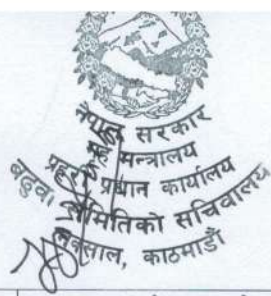 नेपाल सरकार
मन्त्रालय
प्रहरी प्रधान कार्यालय
बढुवा समितिको सचिवालय
नक्साल, काठमाडौं